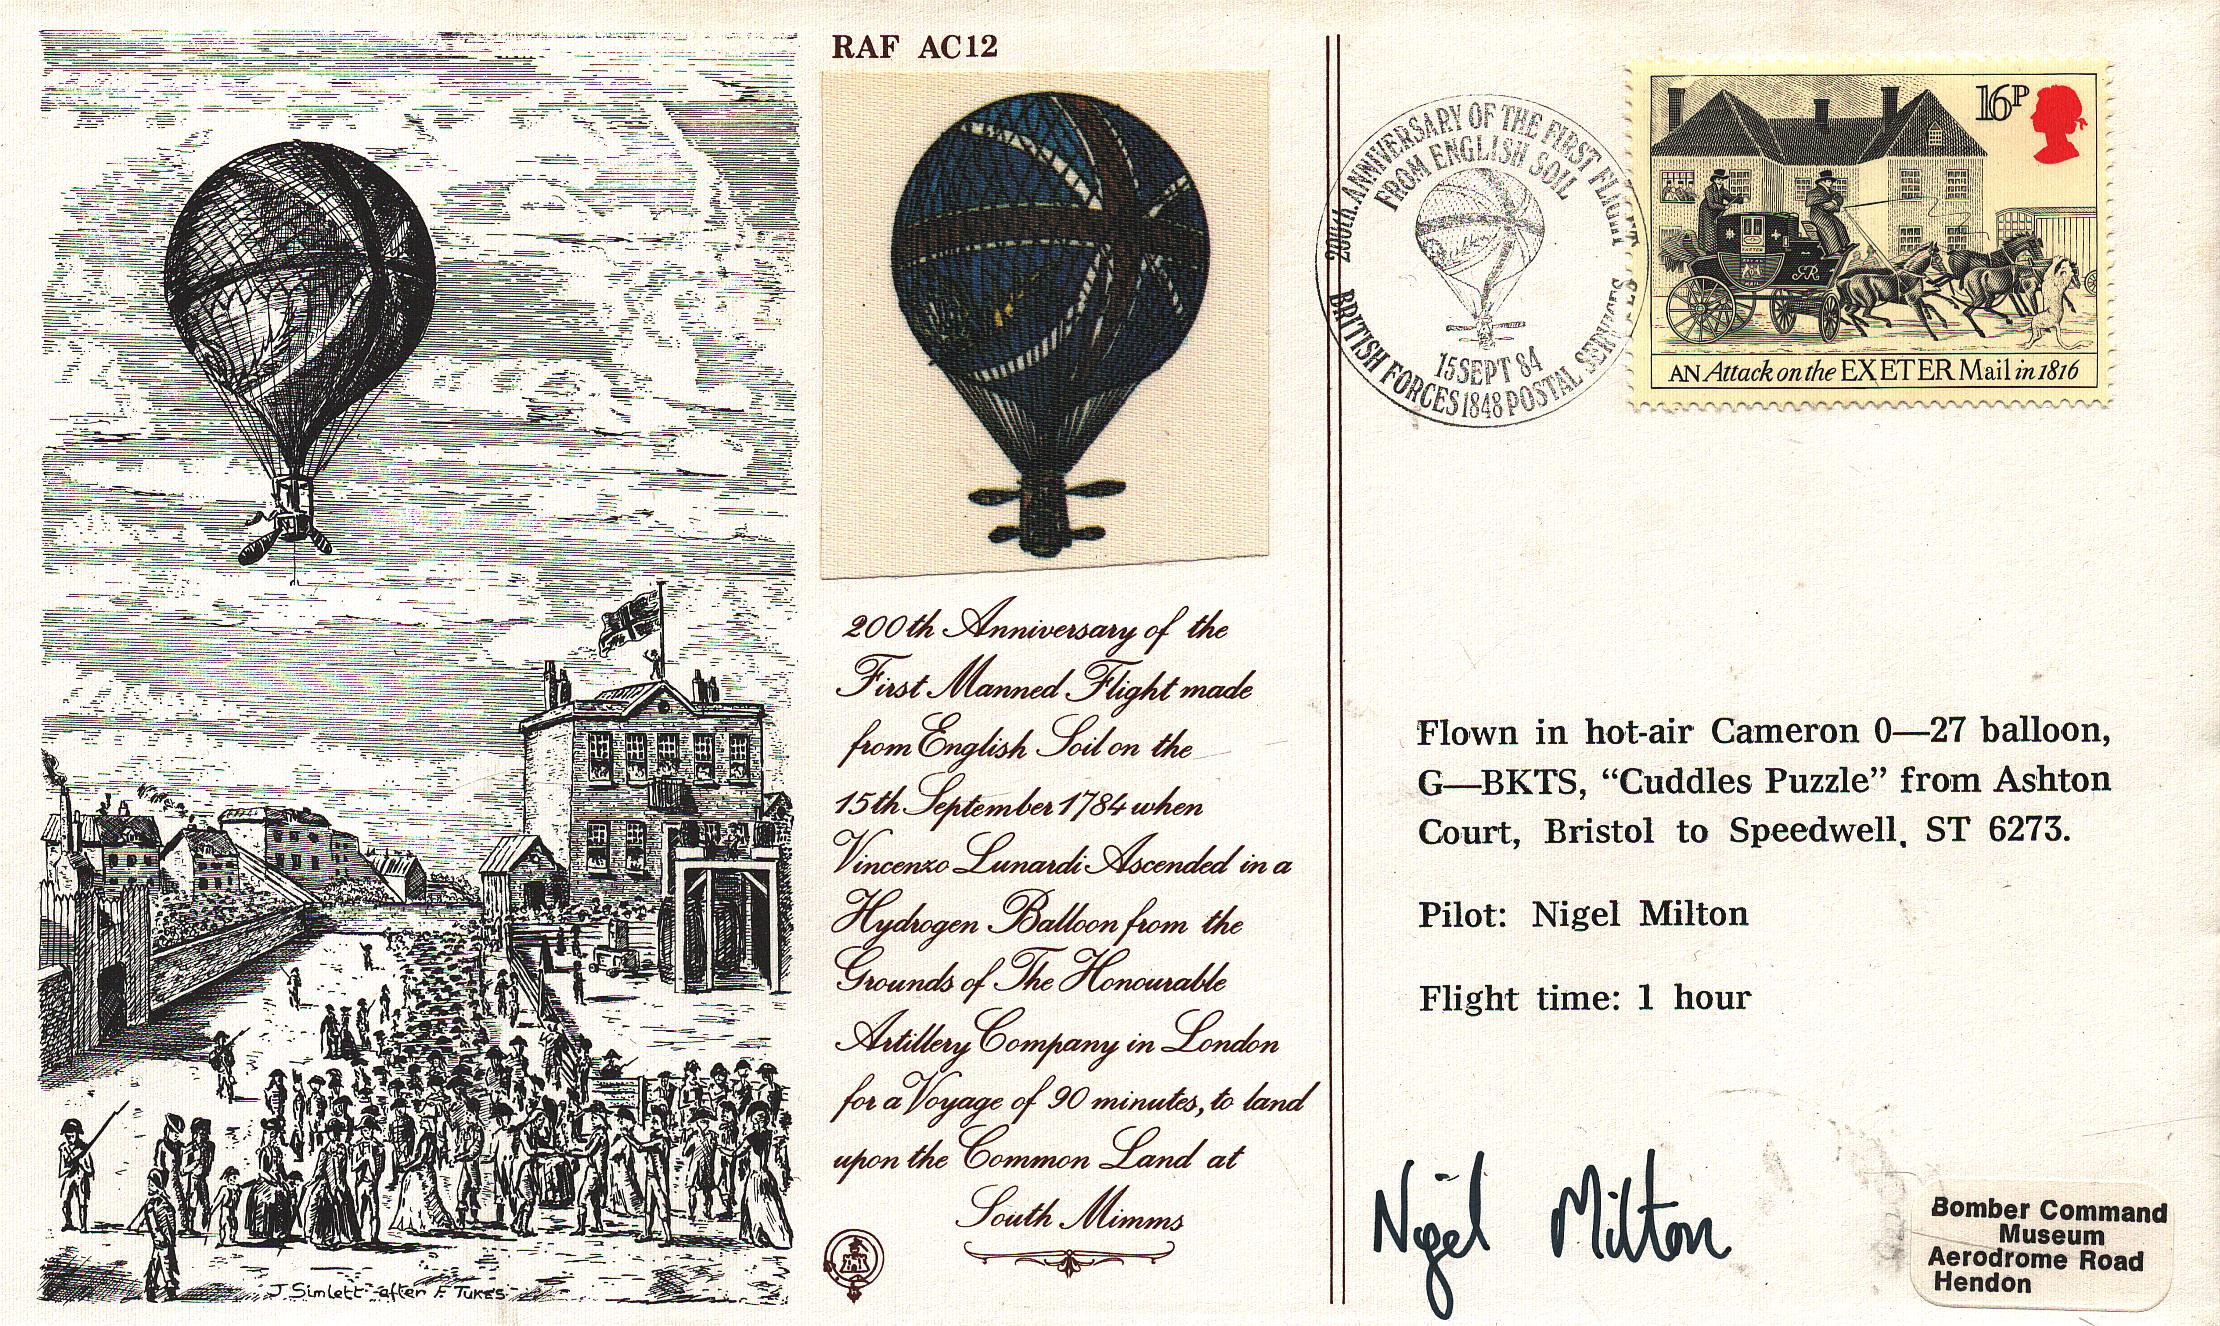 RAF AC12
200th Anniversary of the
First Manned Flight made
from English Soil on the
15th September 1784 when
Vincenzo Lunardi Ascended in a
Hydrogen Balloon from the
Grounds of The Honourable
Artillery Company in London
for a Voyage of 90 minutes, to land
upon the Common Land at
South Mimms
J. Simlett after F. Tukes
200th ANNIVERSARY OF THE FIRST FLIGHT
FROM ENGLISH SOIL
15 SEPT 84
BRITISH FORCES 1848 POSTAL SERVICES
16P
GR
AN Attack on the EXETER Mail in 1816
Flown in hot-air Cameron 0—27 balloon,
G—BKTS, “Cuddles Puzzle” from Ashton
Court, Bristol to Speedwell, ST 6273.
Pilot: Nigel Milton
Flight time: 1 hour
Nigel Milton
Bomber Command
Museum
Aerodrome Road
Hendon